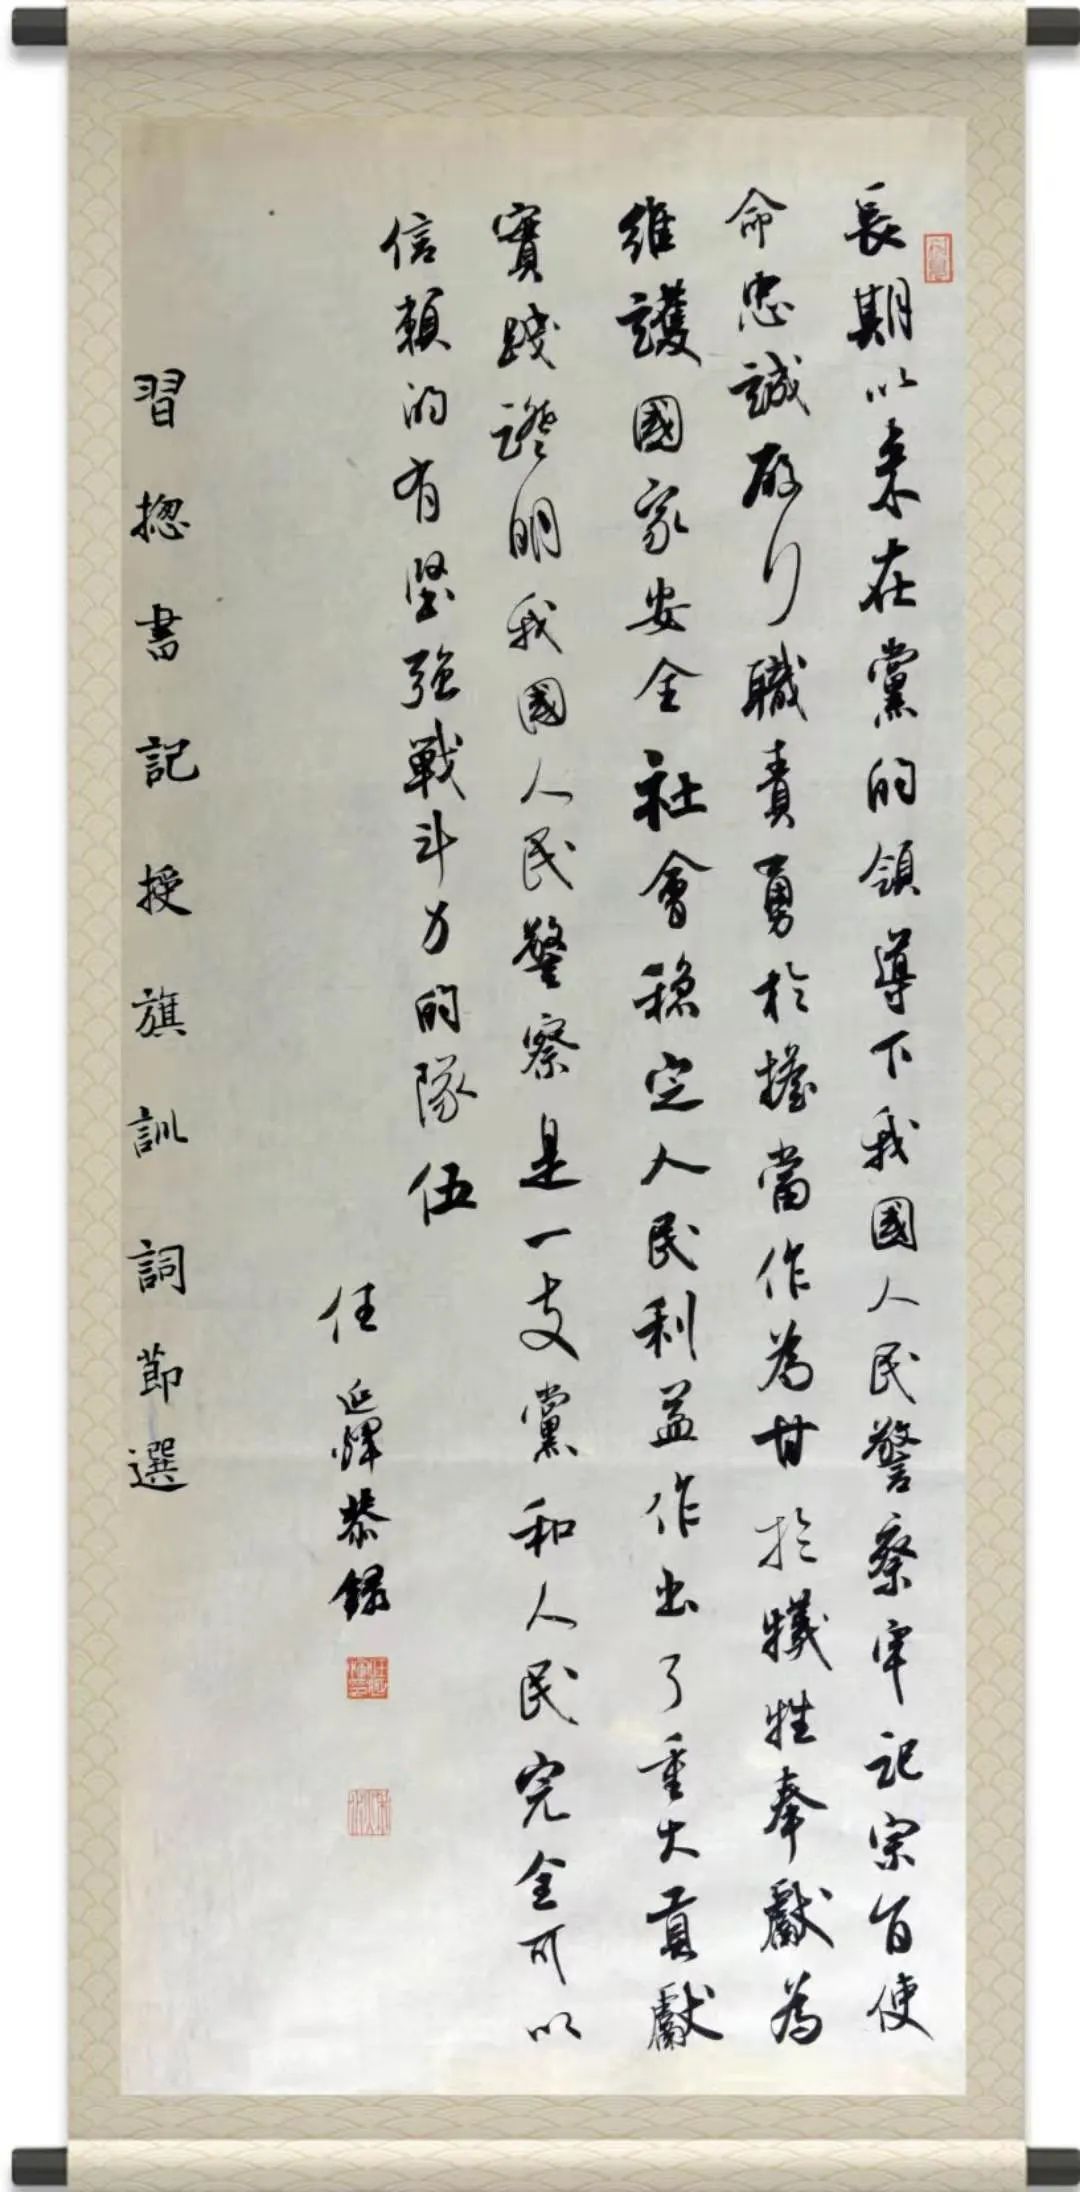 長期以来在黨的領導下我國人民警察牢記宗旨使
命忠誠履行職責勇於擔當作為甘於犧牲奉獻為
維護國家安全社會穩定人民利益作出了重大貢獻
實踐證明我國人民警察是一支黨和人民完全可以
信賴的有堅強戰斗力的隊伍
任延輝恭錄
習揔書記授旗訓詞節選